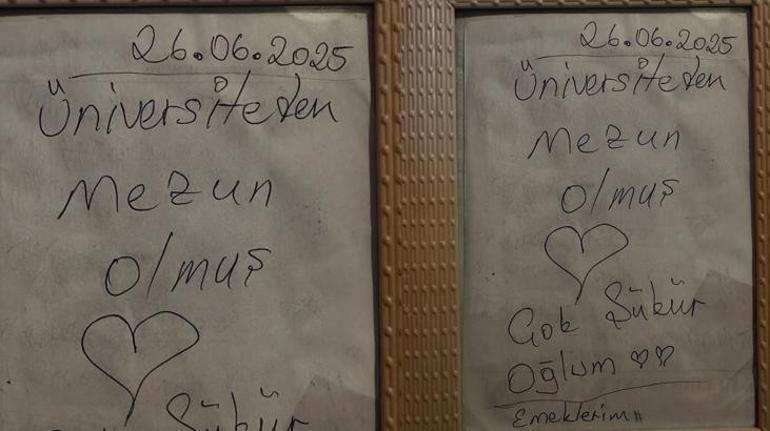 26.06.2025
Üniversiteden
Mezun
olmuş
Şükür
26.06.2025
Üniversiteden
Mezun
olmuş
Çok Şükür
Oğlum
Emeklerim